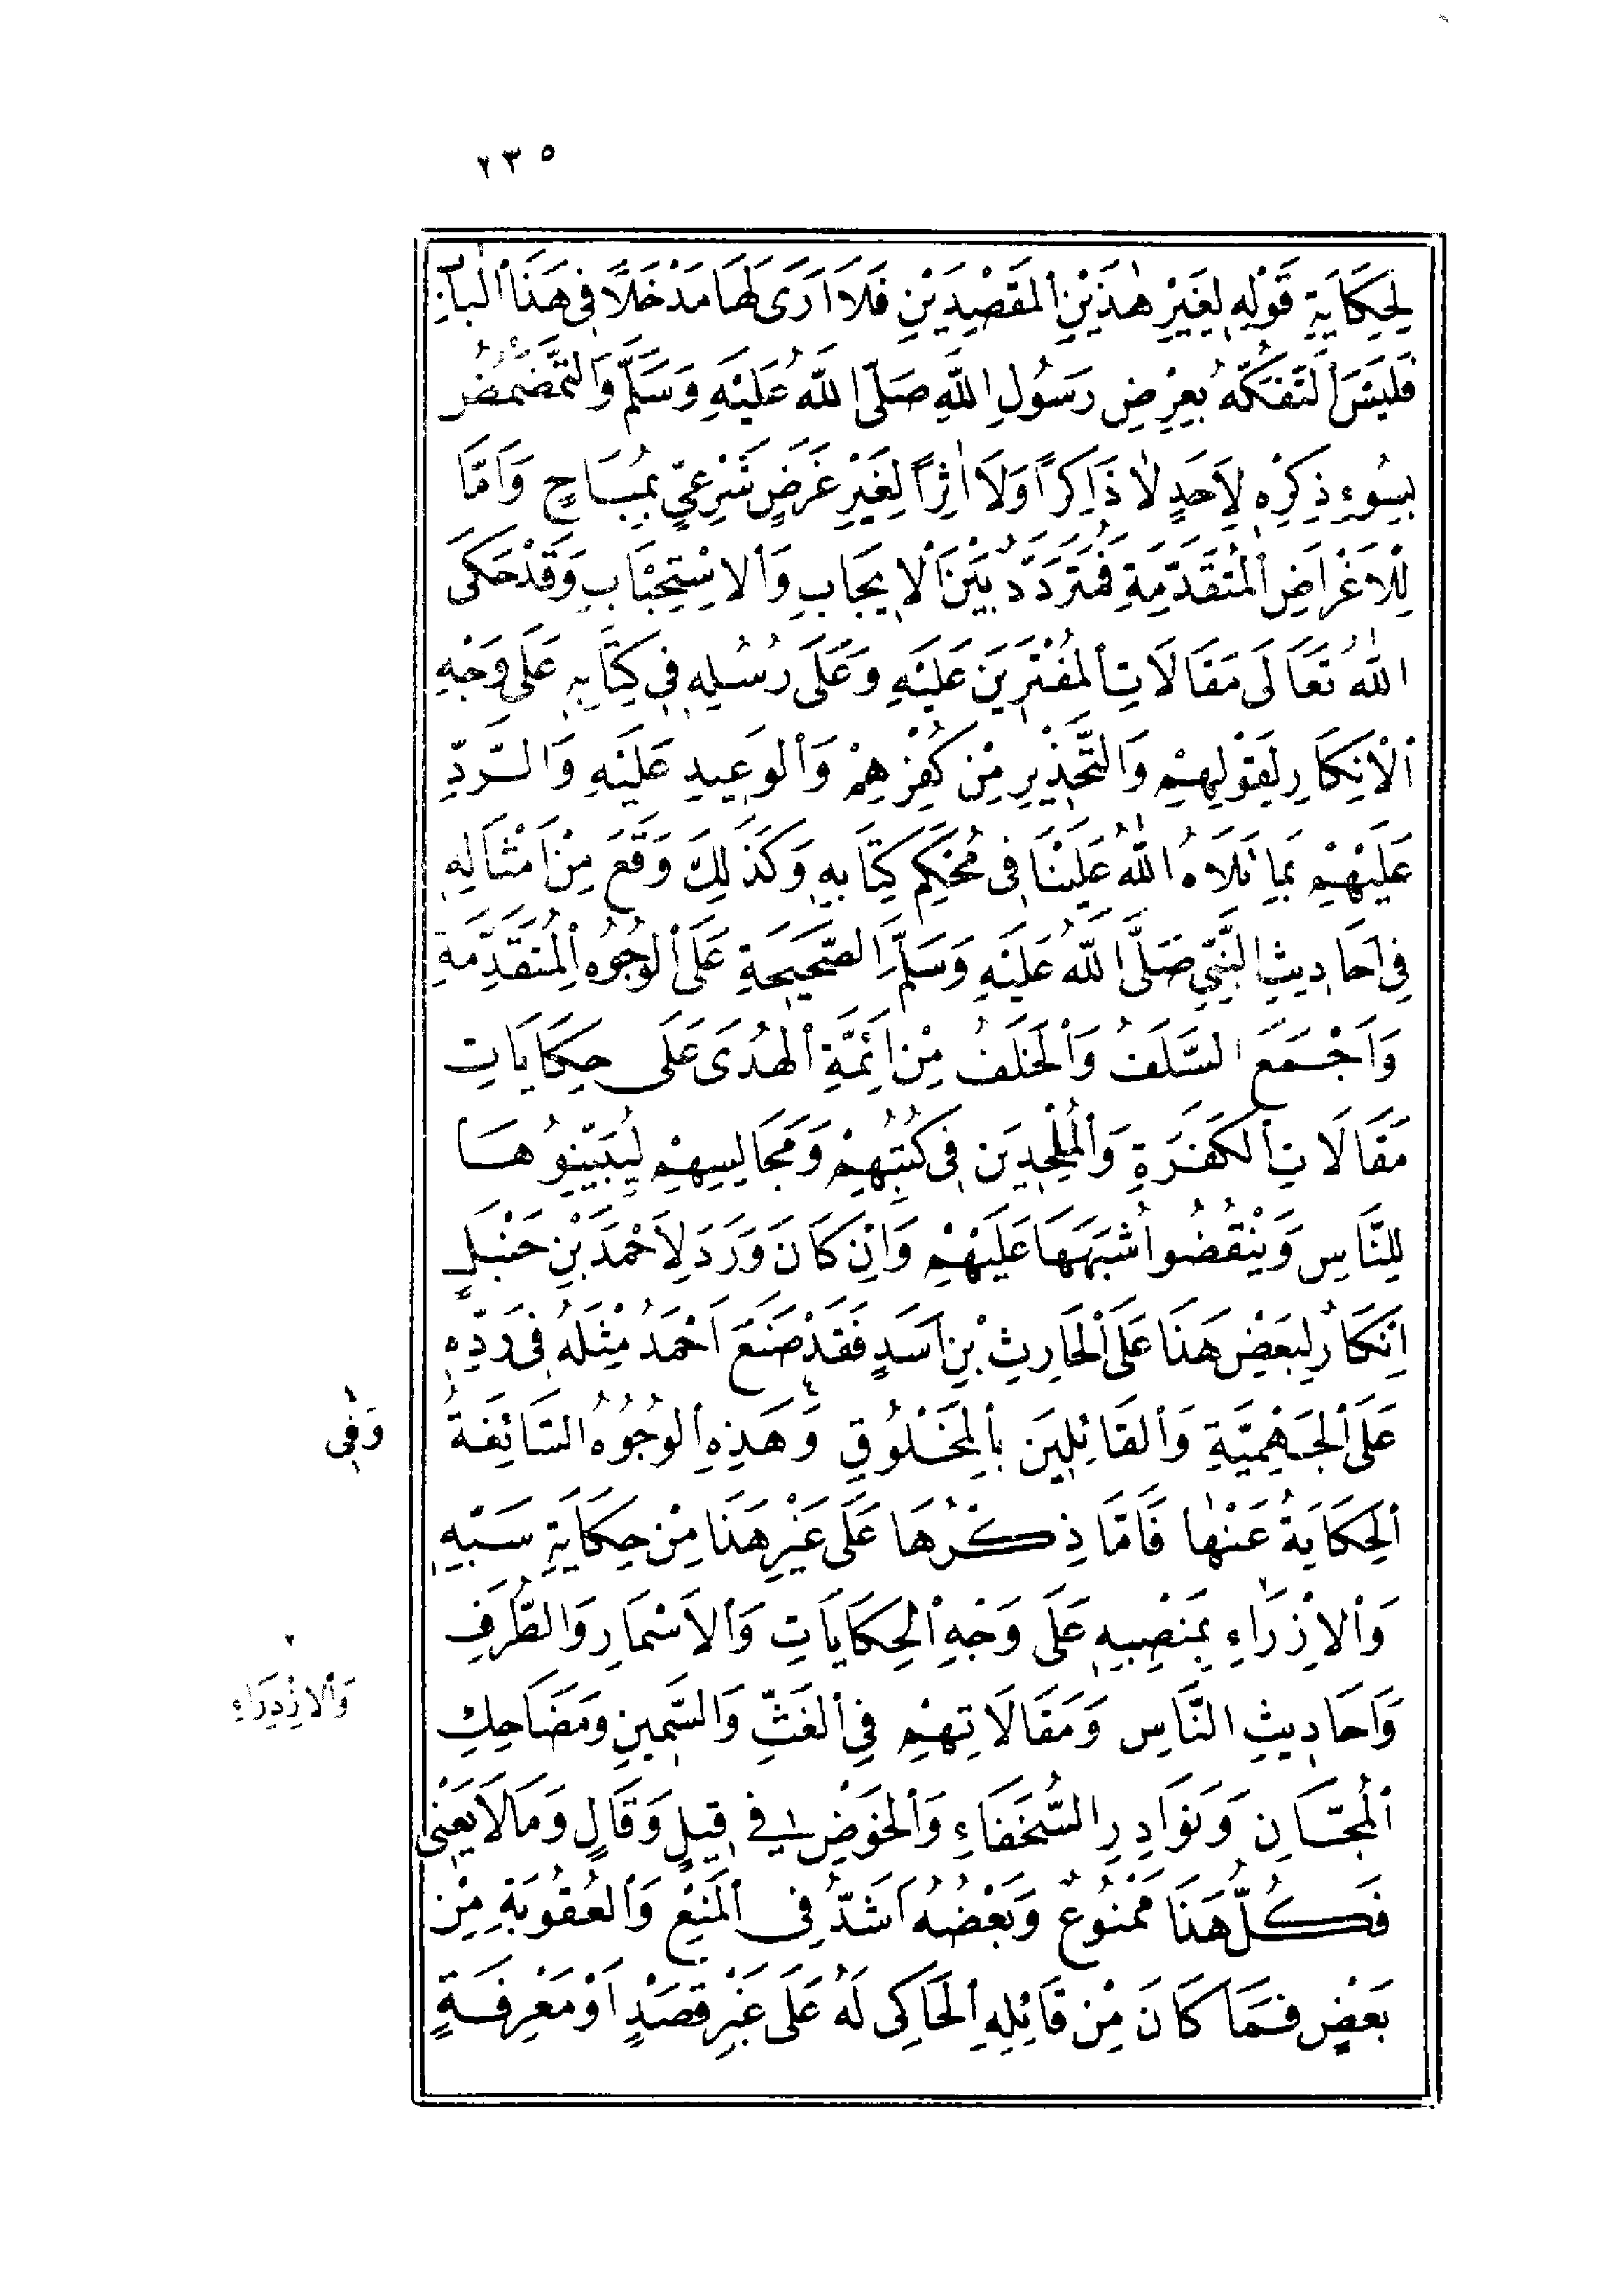 ٢٣٥
لِحِكَايَةِ قَوْلِهِ لِغَيْرِ هٰذَيْنِ الْمَقْصِدَيْنِ فَلَا اَرَى لَهَا مَدْخَلًا فِى هَذَا الْبَابِ
فَلَيْسَ التَّفَكُّهُ بِعِرْضِ رَسُولِ اللّٰهِ صَلَّى اللّٰهُ عَلَيْهِ وَسَلَّمَ وَالتَّمَضْمُضُ
بِسُوءِ ذِكْرِهِ لِاَحَدٍ لَا ذَاكِرًا وَلَا اٰثِرًا لِغَيْرِ غَرَضٍ شَرْعِىٍّ بِمُبَاحٍ وَاَمَّا
لِلْاَغْرَاضِ الْمُتَقَدِّمَةِ فَمُتَرَدِّدٌ بَيْنَ الْاِيجَابِ وَالْاِسْتِحْبَابِ وَقَدْ حَكَى
اللّٰهُ تَعَالَى مَقَالَاتِ الْمُفْتَرِينَ عَلَيْهِ وَعَلَى رُسُلِهِ فِى كِتَابِهِ عَلَى وَجْهِ
الْاِنْكَارِ لِقَوْلِهِمْ وَالتَّحْذِيرِ مِنْ كُفْرِهِمْ وَالْوَعِيدِ عَلَيْهِ وَالرَّدِّ
عَلَيْهِمْ بِمَا تَلَاهُ اللّٰهُ عَلَيْنَا فِى مُحْكَمِ كِتَابِهِ وَكَذَلِكَ وَقَعَ مِنْ اَمْثَالِهِ
فِى اَحَادِيثِ النَّبِىِّ صَلَّى اللّٰهُ عَلَيْهِ وَسَلَّمَ الصَّحِيحَةِ عَلَى الْوُجُوهِ الْمُتَقَدِّمَةِ
وَاَجْمَعَ السَّلَفُ وَالْخَلَفُ مِنْ اَئِمَّةِ الْهُدَى عَلَى حِكَايَاتِ
مَقَالَاتِ الْكَفَرَةِ وَالْمُلْحِدِينَ فِى كُتُبِهِمْ وَمَجَالِسِهِمْ لِيُبَيِّنُوهَا
لِلنَّاسِ وَيَنْقُضُوا شُبَهَهَا عَلَيْهِمْ وَاِنْ كَانَ وَرَدَ لِاَحْمَدَ بْنِ حَنْبَلٍ
اِنْكَارٌ لِبَعْضِ هَذَا عَلَى الْحَارِثِ بْنِ اَسَدٍ فَقَدْ صَنَعَ اَحْمَدُ مِثْلَهُ فِى رَدِّهِ
عَلَى الْجَهْمِيَّةِ وَالْقَائِلِينَ بِالْمَخْلُوقِ وَهَذِهِ الْوُجُوهُ السَّائِغَةُ
وَفِى
الْحِكَايَةُ عَنْهَا فَاَمَّا ذِكْرُهَا عَلَى غَيْرِ هَذَا مِنْ حِكَايَةِ سَبِّهِ
وَالْاِزْرَاءِ بِمَنْصِبِهِ عَلَى وَجْهِ الْحِكَايَاتِ وَالْاَسْمَارِ وَالطُّرَفِ
وَالْاِزْدِرَاءِ
وَاَحَادِيثِ النَّاسِ وَمَقَالَاتِهِمْ فِى الْغَثِّ وَالسَّمِينِ وَمَضَاحِكِ
الْمُجَّانِ وَنَوَادِرِ السُّخَفَاءِ وَالْخَوْضِ فِى قِيلٍ وَقَالٍ وَمَا لَا يَعْنِى
فَكُلُّ هَذَا مَمْنُوعٌ وَبَعْضُهُ اَشَدُّ فِى الْمَنْعِ وَالْعُقُوبَةِ مِنْ
بَعْضٍ فَمَا كَانَ مِنْ قَائِلِهِ الْحَاكِى لَهُ عَلَى غَيْرِ قَصْدٍ اَوْ مَعْرِفَةٍ